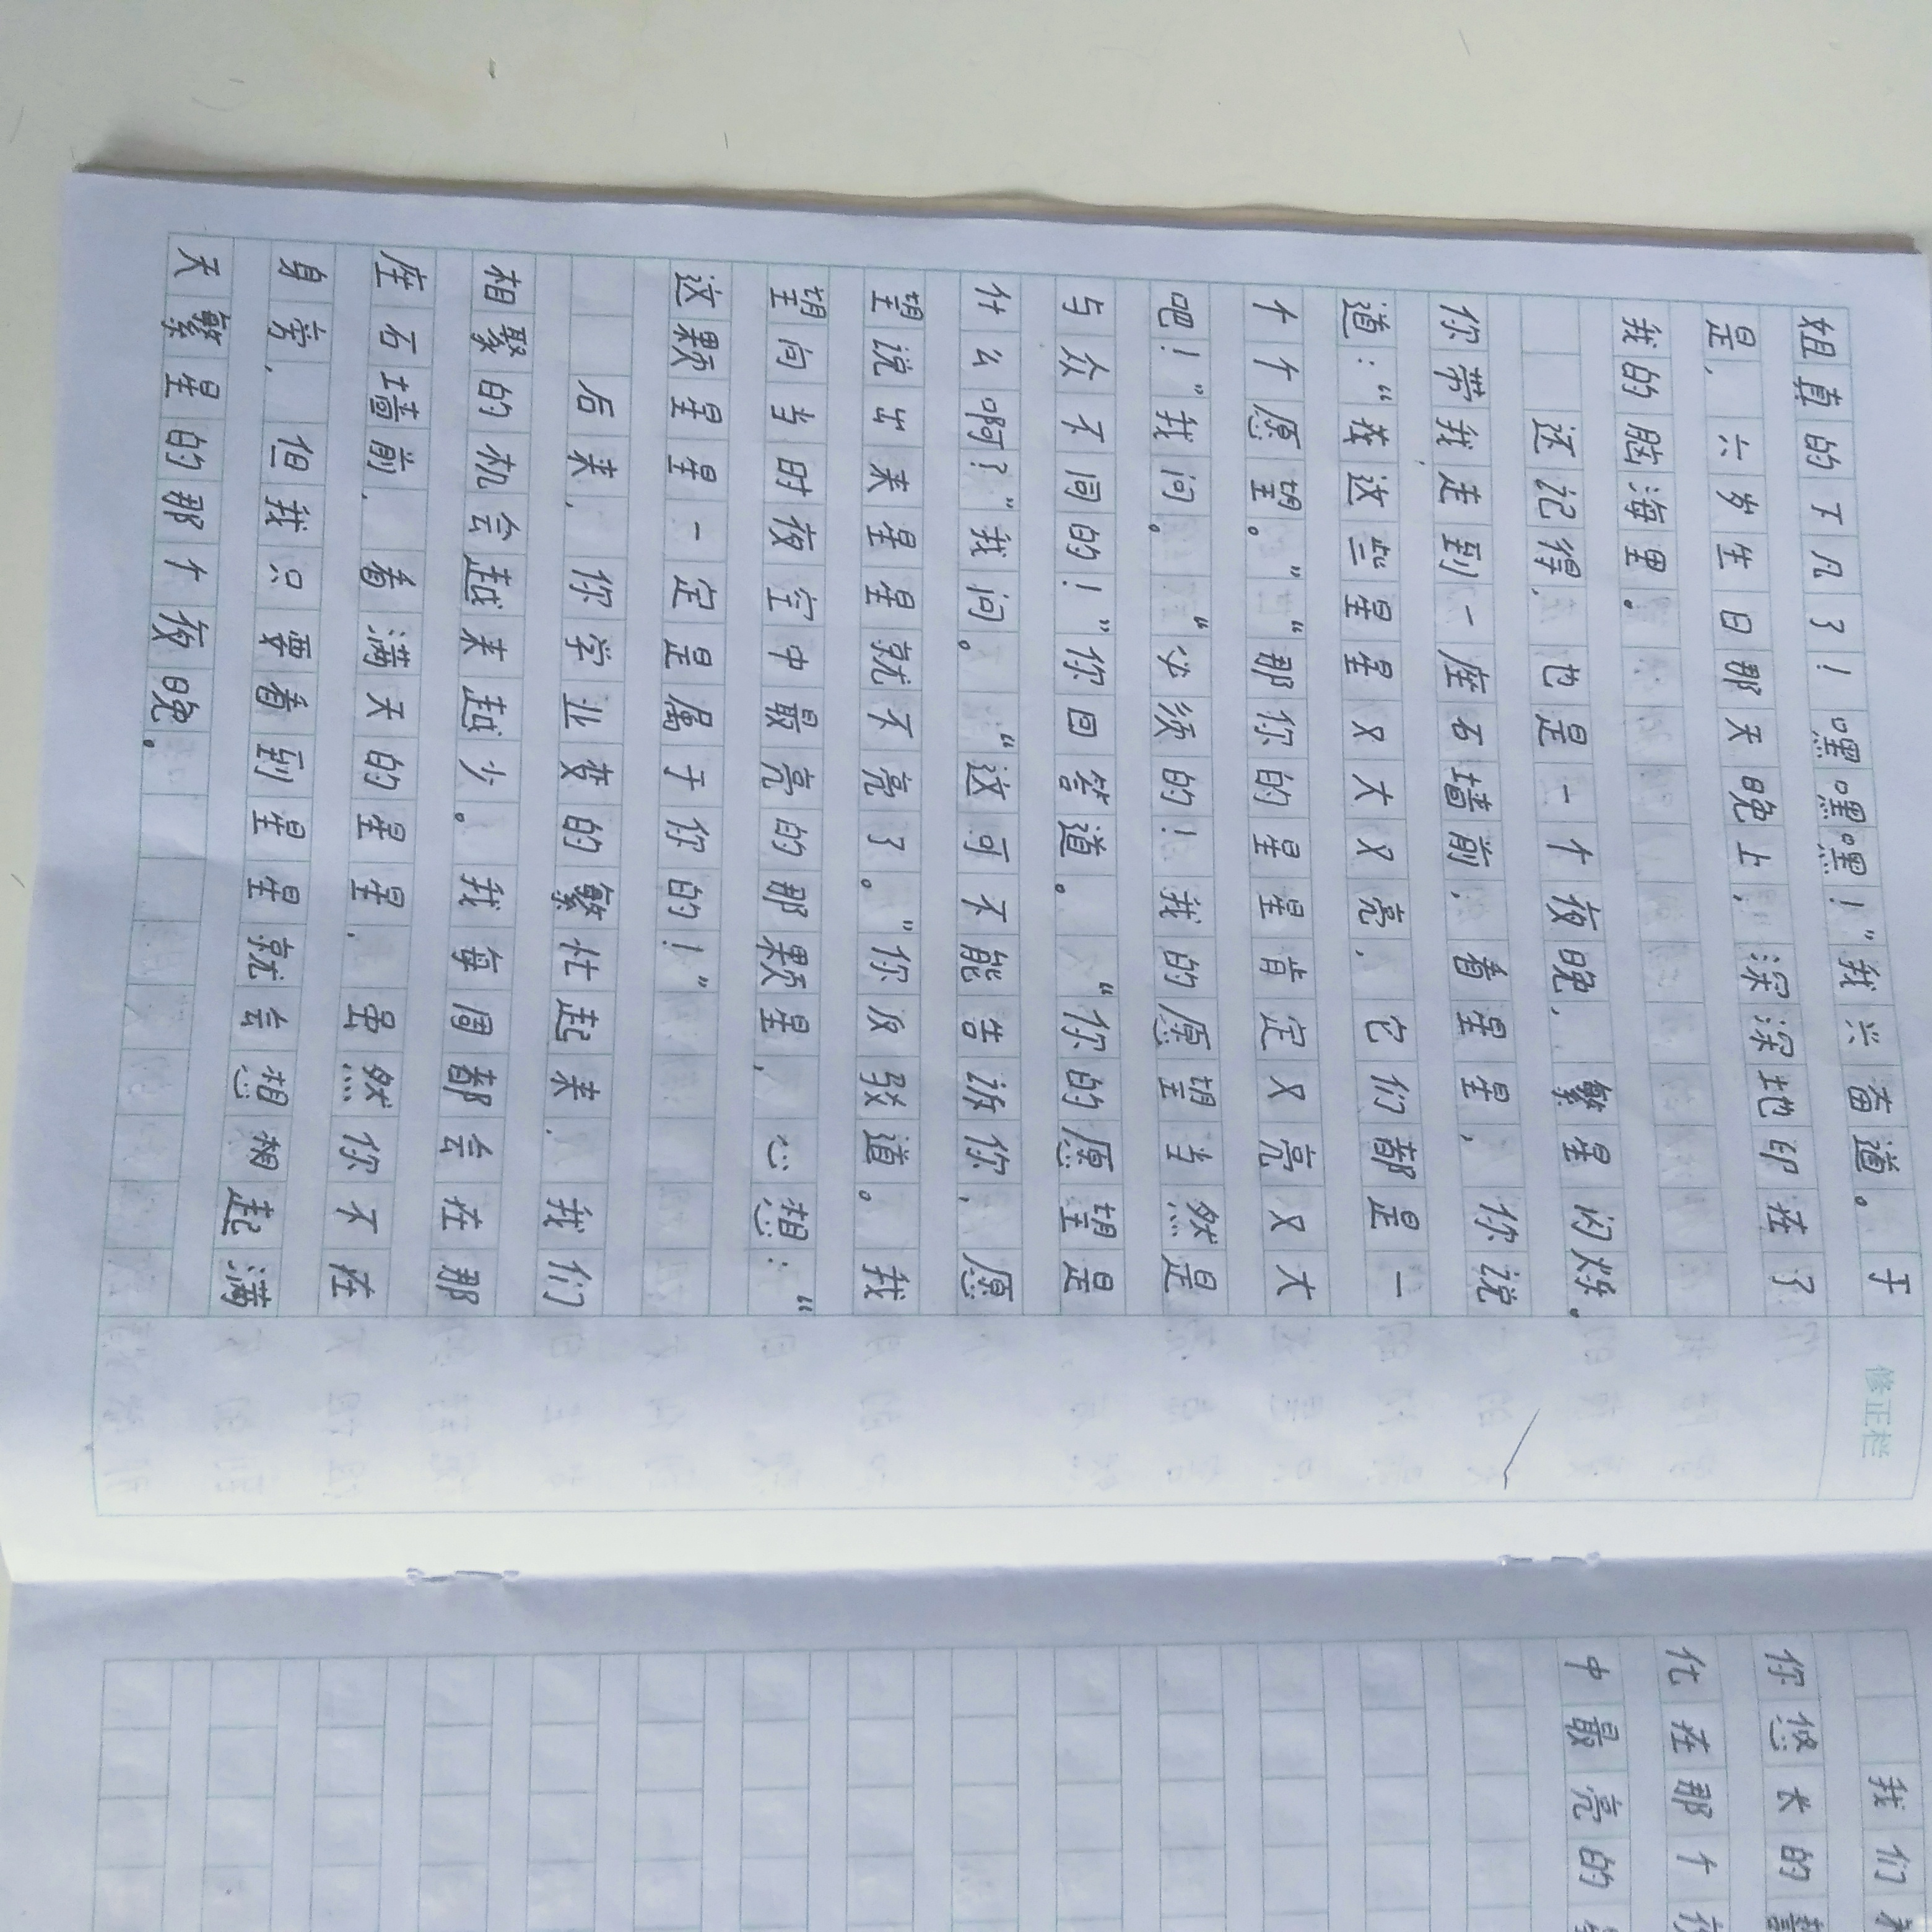 姐真的下凡了！嘿嘿嘿！”我兴奋道。于
是，六岁生日那天晚上，深深地印在了
我的脑海里。
还记得，也是一个夜晚，繁星闪烁。
你带我走到一座石墙前，看星星，你说
道：“莪这些星星又大又亮，它们都是一
个个愿望。”“那你的星星肯定又亮又大
吧！”我问。“必须的！我的愿望当然是
与众不同的！”你回答道。“你的愿望是
什么啊？”我问。“这可不能告诉你，愿
望说出来星星就不亮了。”你反驳道。我
望向当时夜空中最亮的那颗星，心想：“
这颗星星一定是属于你的！”
后来，你学业变的繁忙起来，我们
相聚的机会越来越少。我每周都会在那
座石墙前，看满天的星星，虽然你不在
身旁，但我只要看到星星就会想起满
天繁星的那个夜晚。
修正栏
我们
你悠长的
化在那个
中最亮的